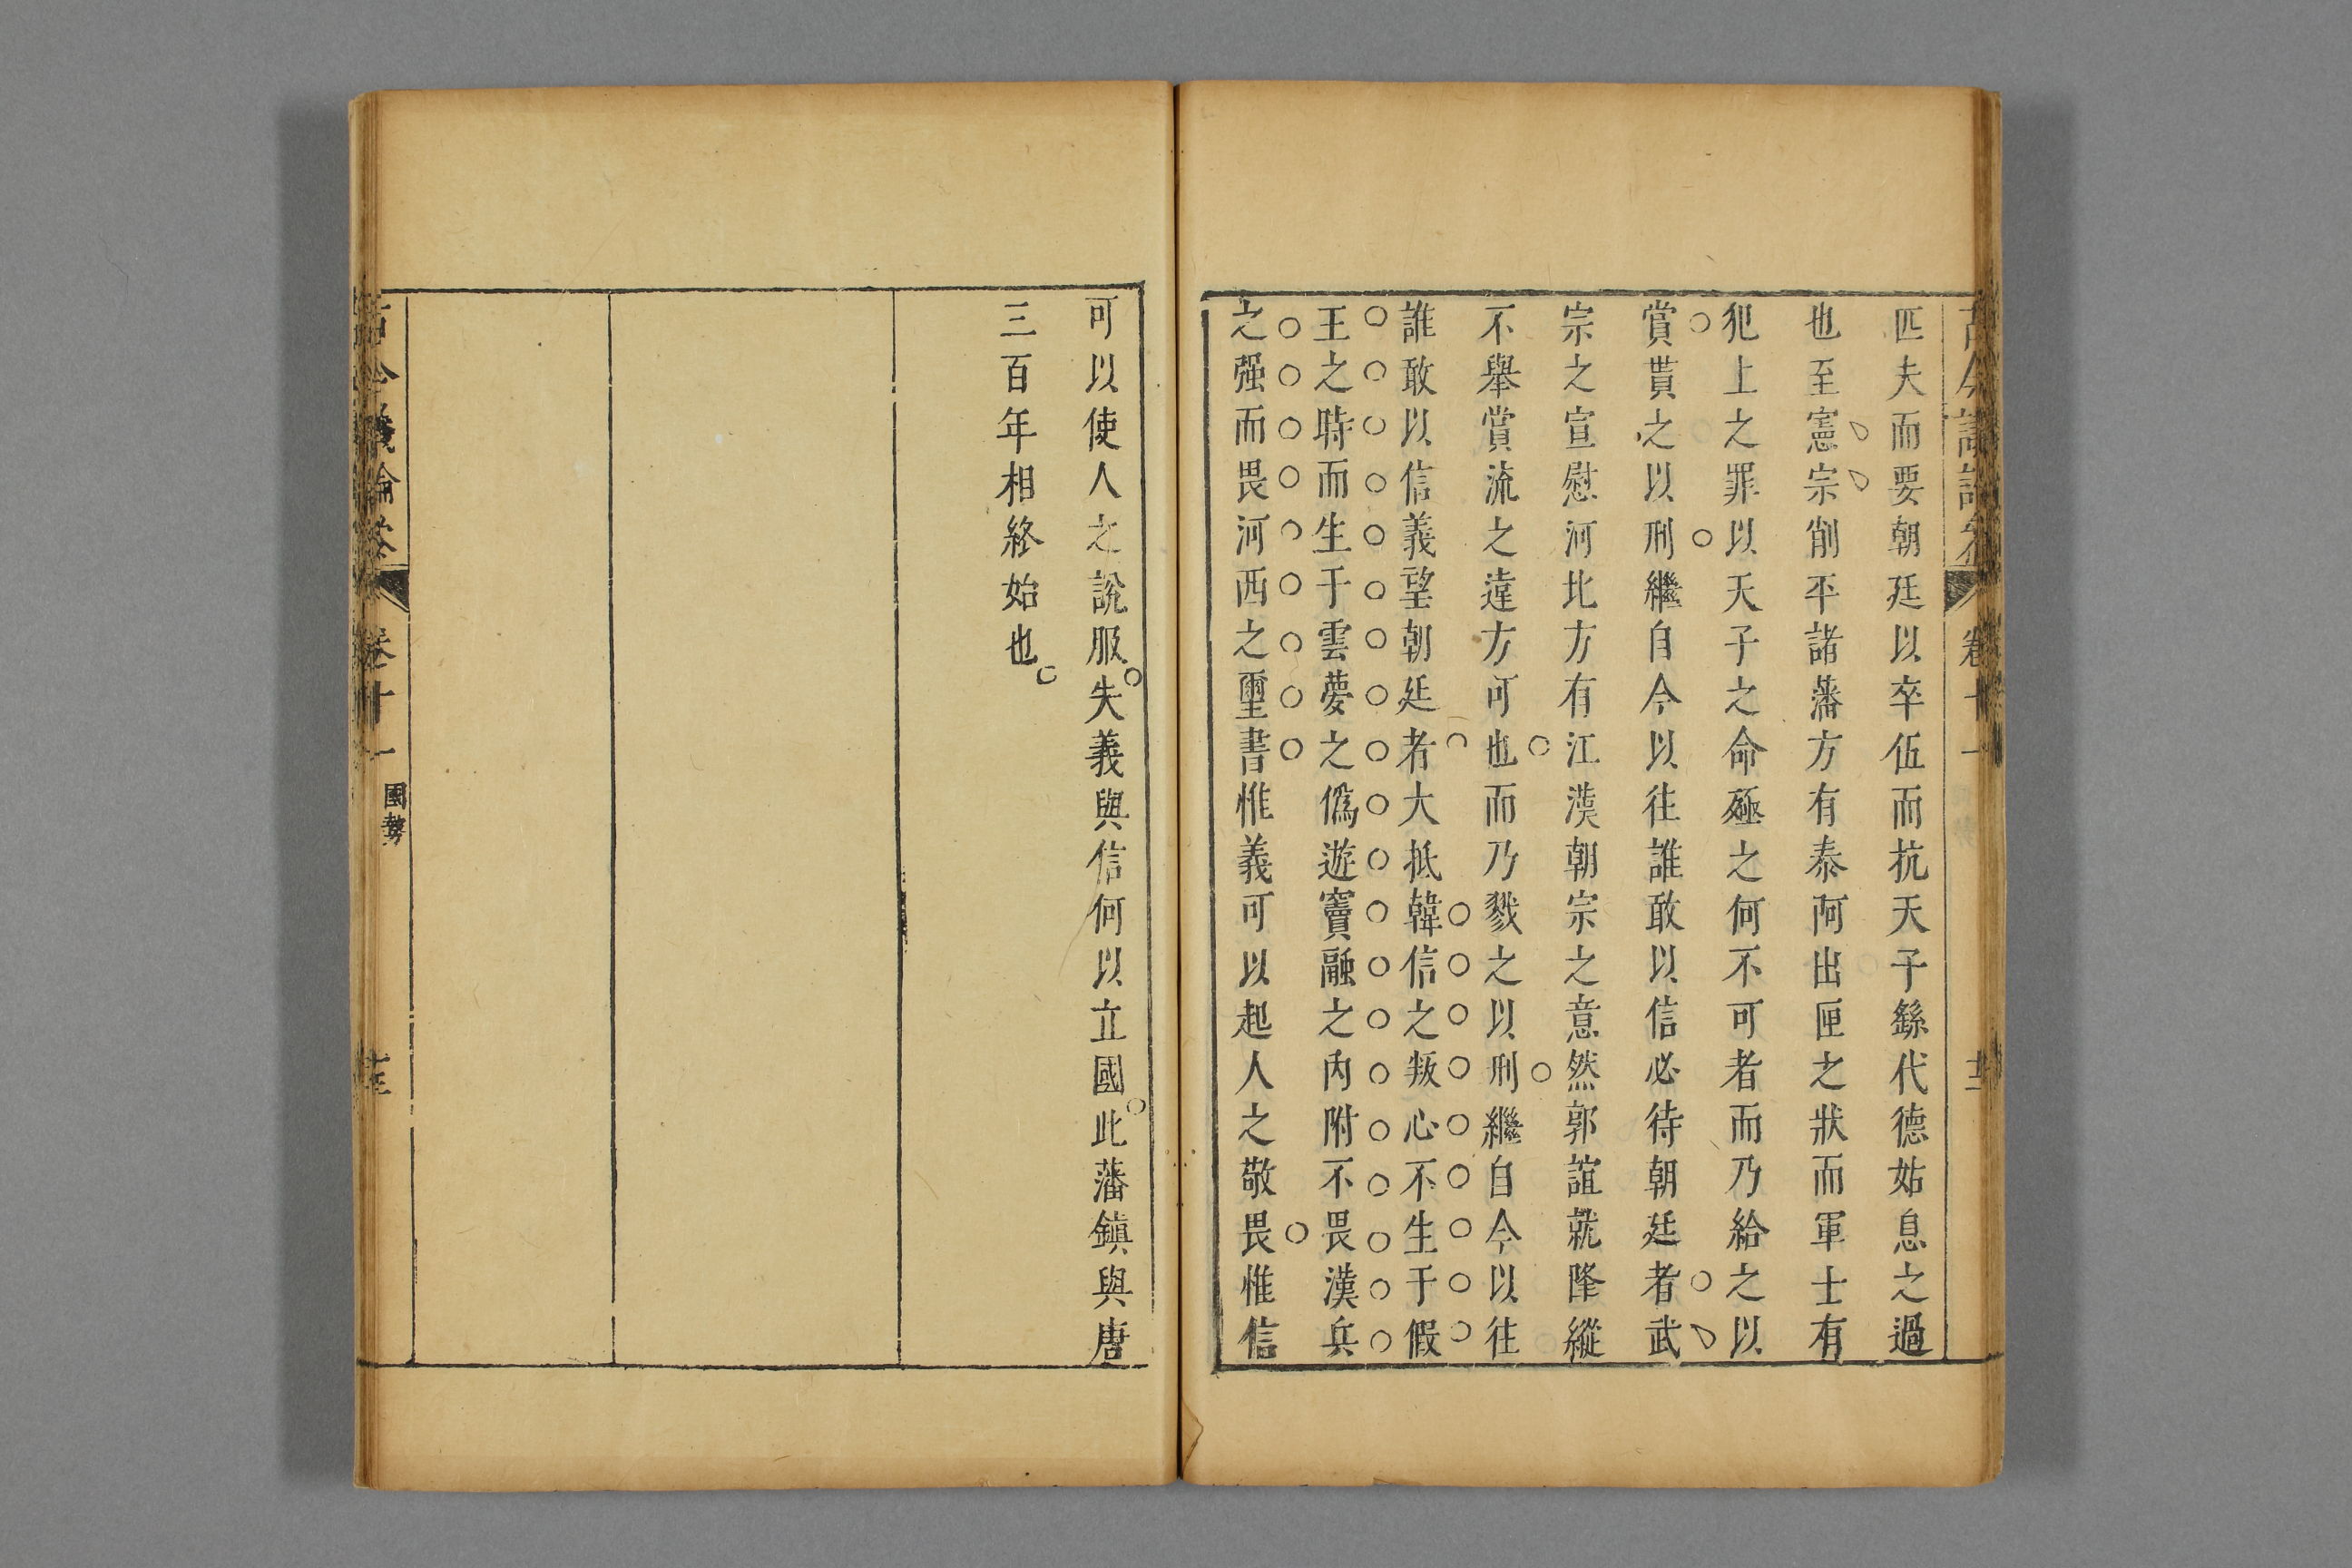 匹夫而要朝廷以卒伍而抗天子繇代德姑息之過
也至憲宗削平諸藩方有泰阿出匣之狀而軍士有
犯上之罪以天子之命殛之何不可者而乃給之以
賞貰之以刑繼自今以往誰敢以信必待朝廷者武
宗之宣慰河北方有江漢朝宗之意然郭誼就降縱
不舉賞流之違方可也而乃戮之以刑繼自今以往
誰敢以信義望朝廷者大抵韓信之叛心不生于假
王之時而生于雲夢之偽遊竇融之內附不畏漢兵
之强而畏河西之璽書惟義可以起人之敬畏惟信
可以使人之說服失義與信何以立國此藩鎮與唐
三百年相終始也
古今議論叅
卷十一
國勢